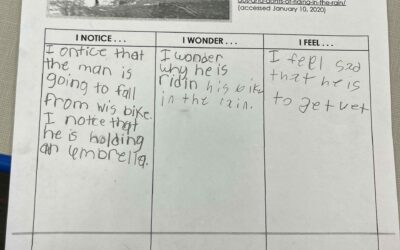 dos-and-donts-of-riding-in-the-rain/
(accessed January 10, 2020)
I NOTICE . . .
I ontice that
the man is
going to fall
from wis bike.
I notce that
he is holding
an umbrella.
I WONDER . . .
I wonder
why he is
ridin his bike
in the rain.
I FEEL . . .
I feel sad
that he is
to get vet